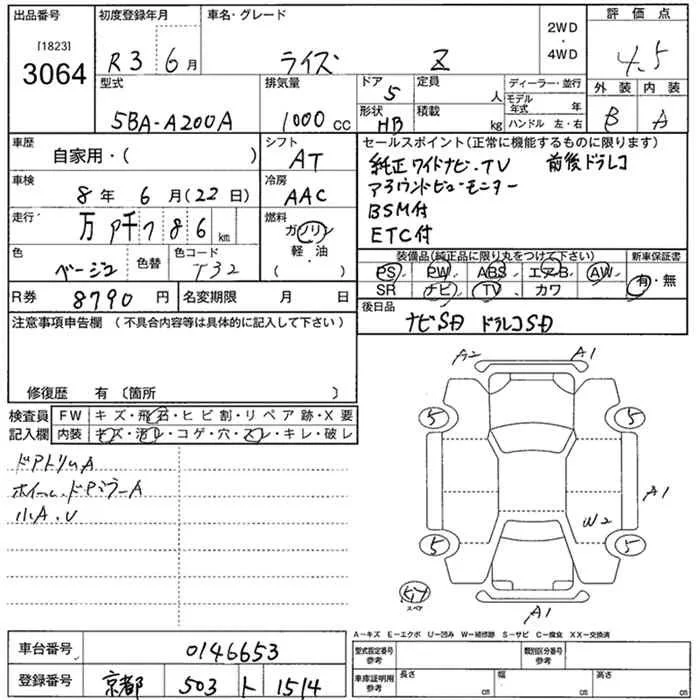 出品番号 初度登録年月 車名・グレード 2WD・4WD 評価点
[1823] 3064 R3 6月 ライズ Z 4.5
型式 排気量 ドア 5 定員 人 ディーラー・並行 外装 内装
5BA-A200A 1000 cc 形状 HB 積載 kg モデル年式 年 B A
ハンドル 左・右
車歴 自家用・( ) シフト AT セールスポイント(正常に機能するものに限ります)
純正ワイドナビ・TV 前後ドラレコ
車検 8年 6月(22日) 冷房 AAC アラウンドビューモニター
走行 万 千 7 8 6 km 燃料 ガソリン BSM付
軽・油 ETC付
( )
色 ベージュ 色替 色コード T32 装備品(純正品に限り丸をつけて下さい) 新車保証書
PS PW ABS エアB AW 有・無
R券 8790 円 名変期限 月 日 SR ナビ TV カワ
後日品 ナビSD ドラレコSD
注意事項申告欄 (不具合内容等は具体的に記入して下さい)
修復歴 有 (箇所 )
検査員記入欄 FW キズ・飛石・ヒビ割・リペア跡・X要
内装 キズ・汚レ・コゲ・穴・スレ・キレ・破レ
ドアトリムA
ホイール、ドアミラーA
小A、U
A2 A1
5 5
A1
W2
5 5
スペア
A1
A-キズ E-エクボ U-凹み W-補修跡 S-サビ C-腐食 XX-交換済
車台番号 0146653 型式指定番号 参考 類別区分番号 参考
登録番号 京都 503 ト 1514 車庫証明用 参考 長さ cm 幅 cm 高さ cm